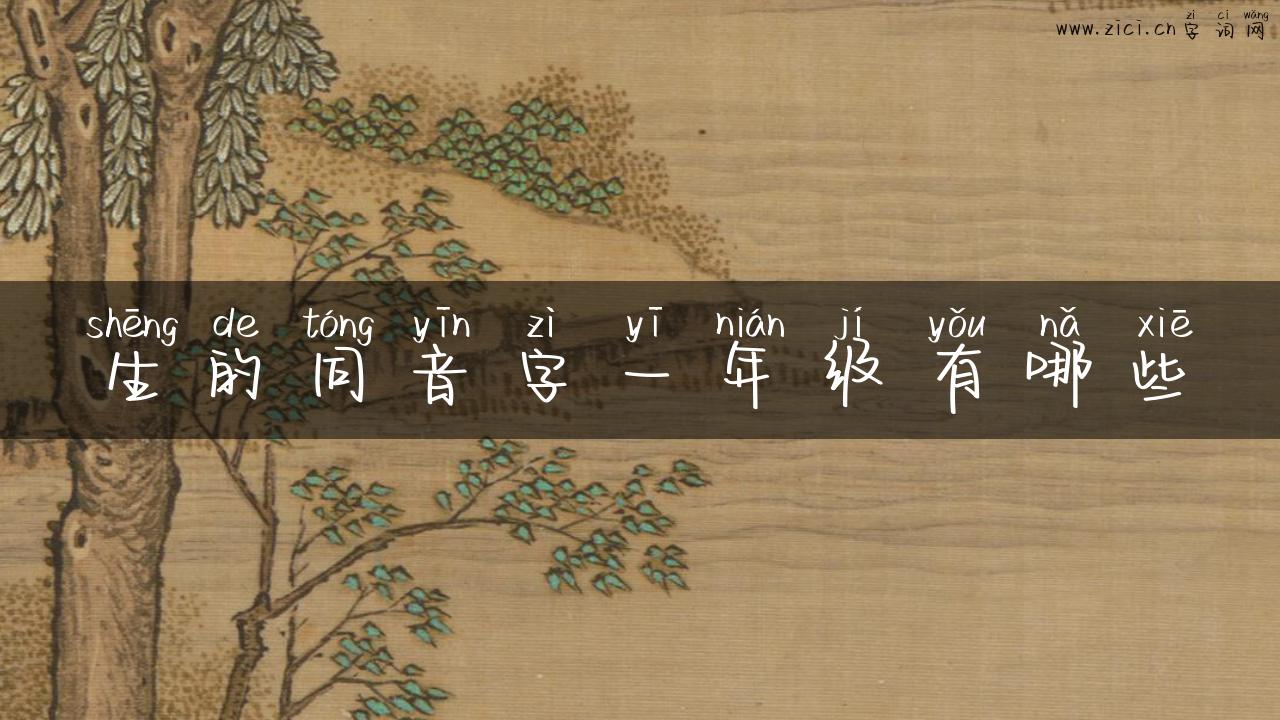 zì cí wǎng
www.zici.cn 字词网
shēng de tóng yīn zì yī nián jí yǒu nǎ xiē
生的同音字一年级有哪些